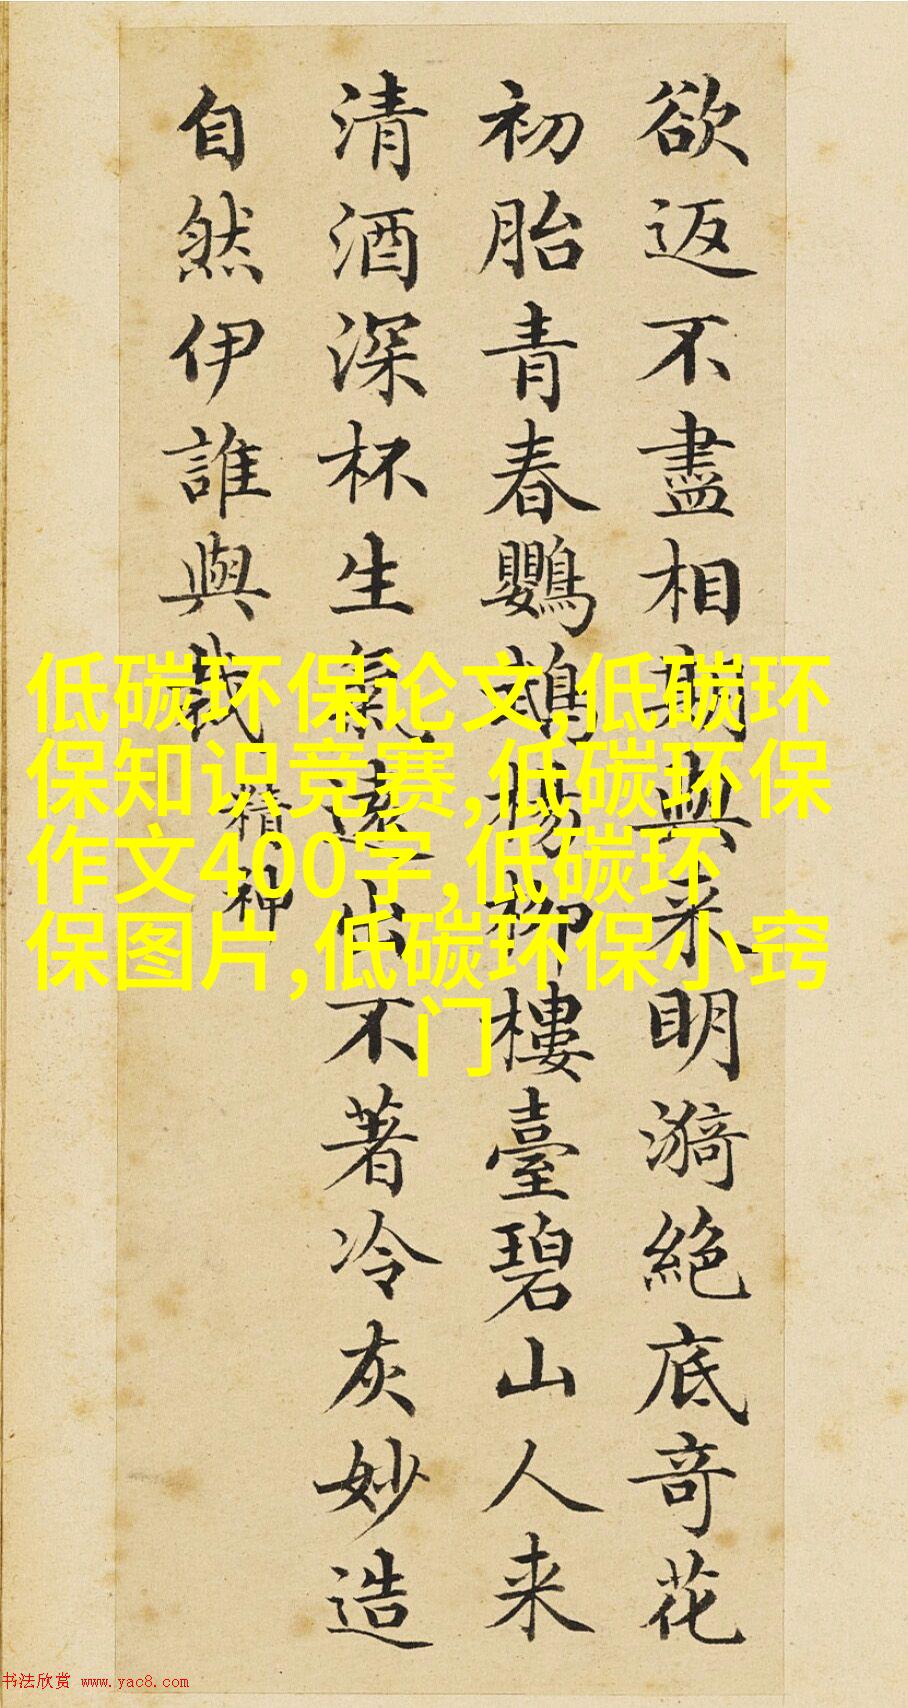 欲返不盡相期與来明漪絕底奇花
初胎青春鸚鵡楊柳樓臺碧山人来
清酒深杯生氣遠出不著冷灰妙造
自然伊誰與裁
精神
低碳环保论文,低碳环
保知识竞赛,低碳环保
作文400字,低碳环
保图片,低碳环保小窍
门
书法欣赏 www.yac8.com